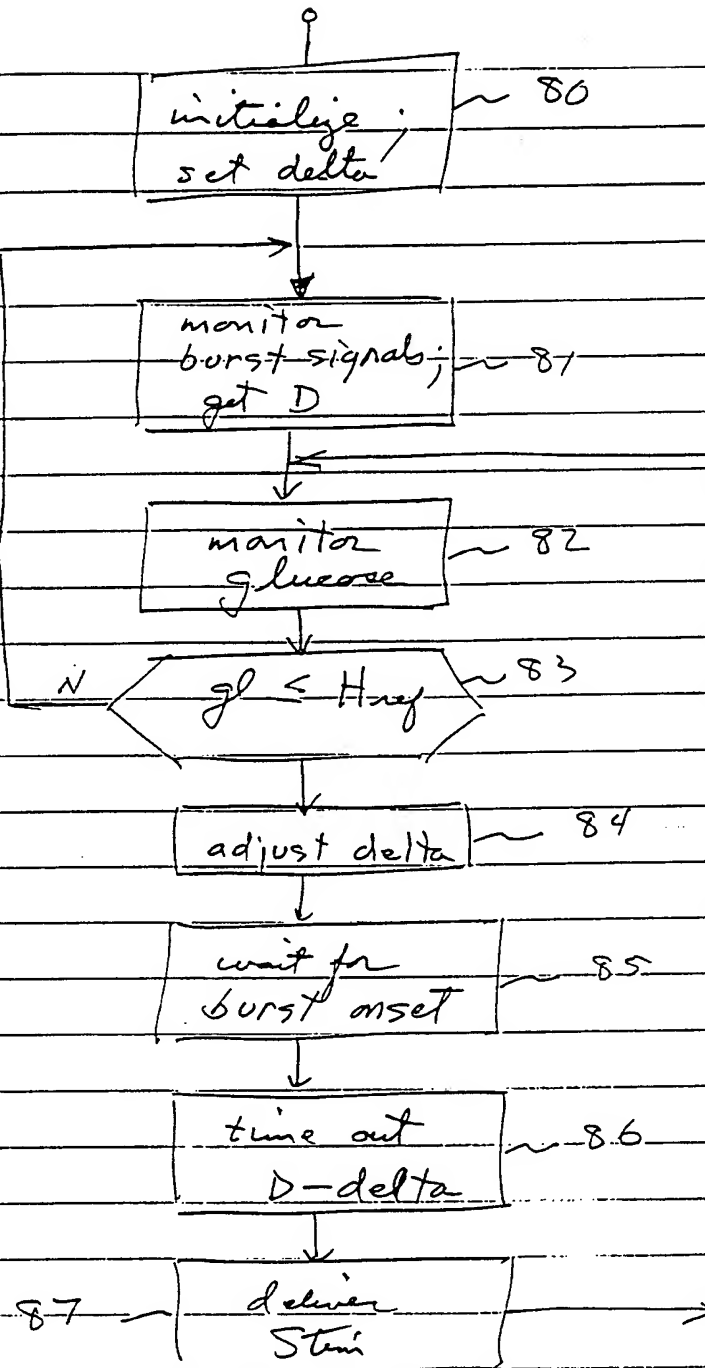 initialize;
set delta
80
monitor
burst signals;
get D
81
monitor
glucose
82
N
gl ≤ Href
83
adjust delta
84
wait for
burst onset
85
time out
D-delta
86
87
deliver
Stim